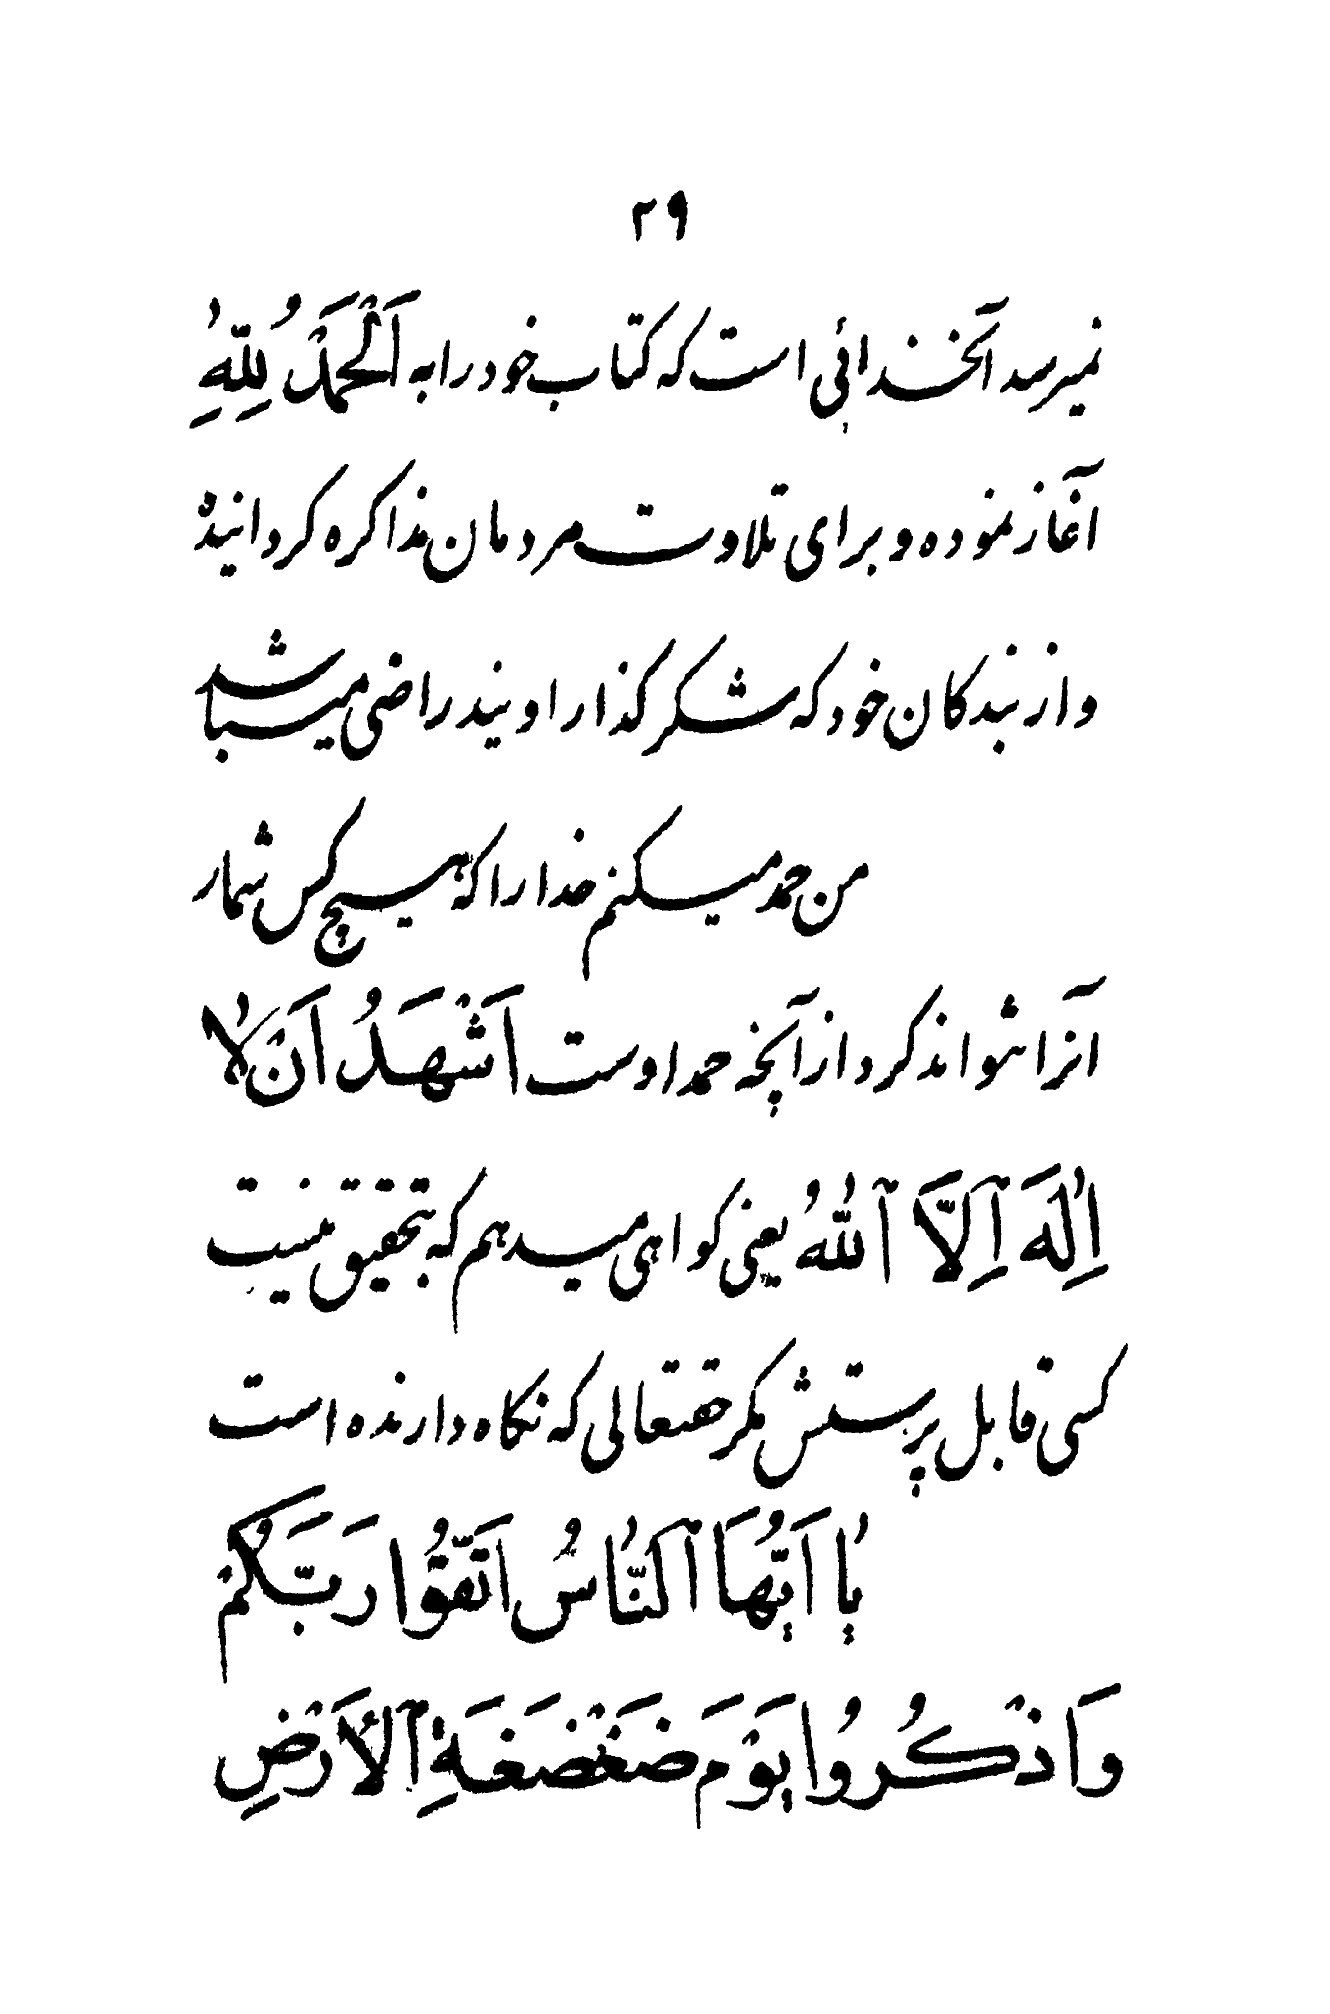 ۲۹
نمیرسد آنخدائی است که کتاب خود را به اَلْحَمْدُ لِلّٰهِ
آغاز نموده و برای تلاوت مردمان مذاکره کردانیده
و از بندکان خود که شکر کذار اویند راضی میباشد
من حمد میکنم خدا را که هیچ کس شمار
آنرا نتواند کرد از آنچه حمد اوست اَشْهَدُ اَنْ لٰا
اِلٰهَ اِلَّا اللّٰهُ یعنی کواهی میدهم که بتحقیق نیست
کسی قابل پرستش مکر حقتعالی که نکاه دارنده است
یٰا اَیُّهَا النّٰاسُ اتَّقُوا رَبَّکُمْ
وَاذْکُرُوا یَوْمَ ضَغْضَغَةِ الْأَرْضِ